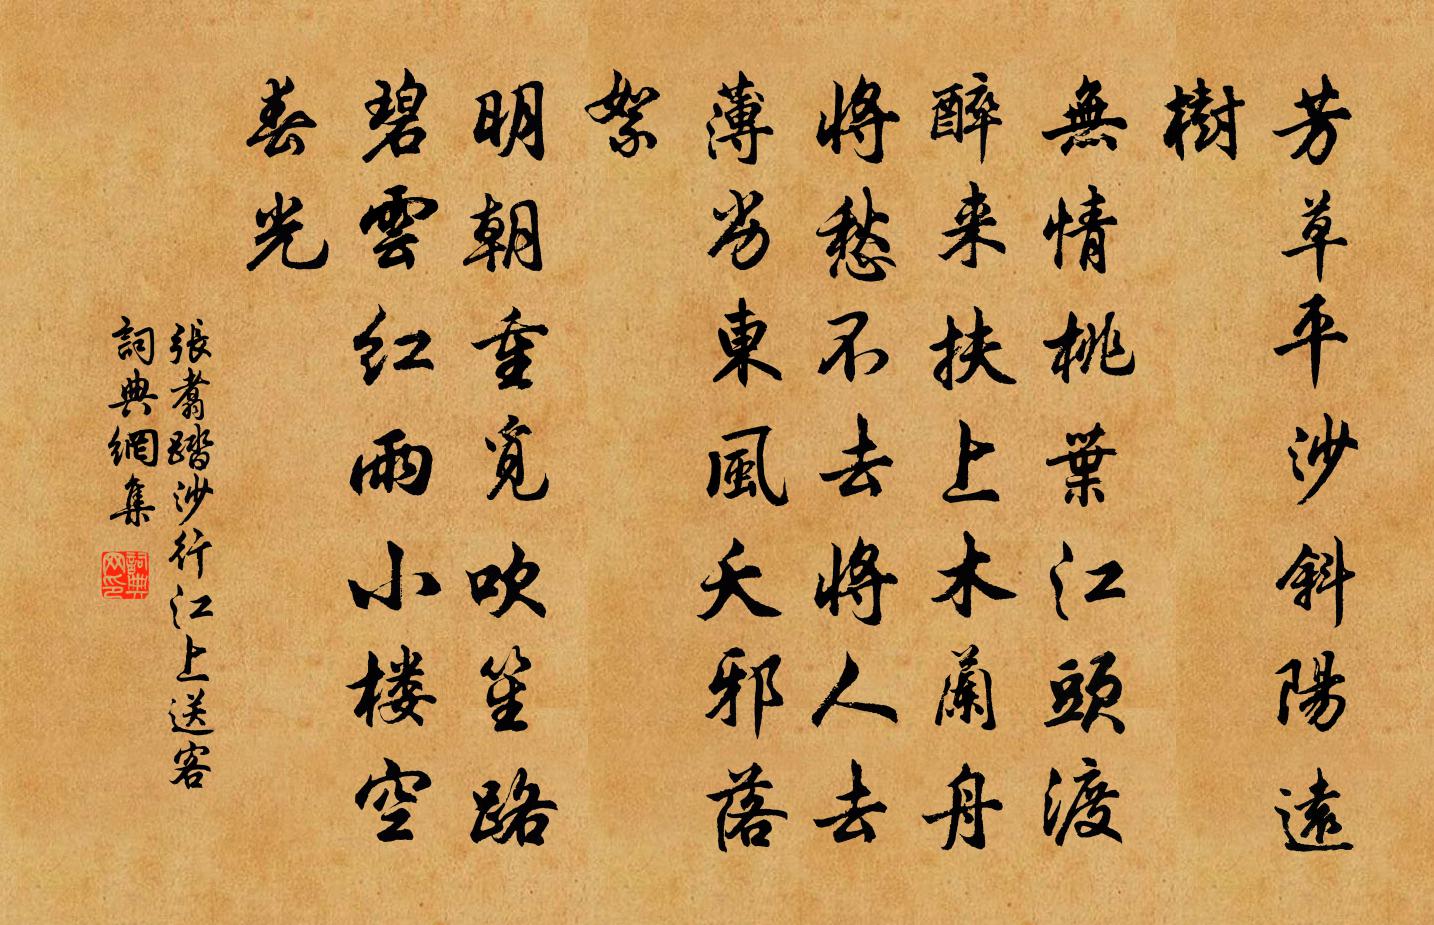 芳草平沙斜陽遠
樹
無情桃葉江頭渡
醉来扶上木蘭舟
將愁不去將人去
薄劣東風夭邪落
絮
明朝重覓吹笙路
碧雲紅雨小楼空
春光
張翥踏沙行江上送客
詞典網集
詞典网印